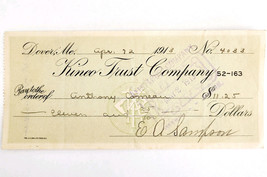 Dover, Me. Apr. 12 1913 No. 4033
Kineo Trust Company 52-163
Pay to the order of Anthony Comeau $11.25
Eleven and Dollars
E A Sampson